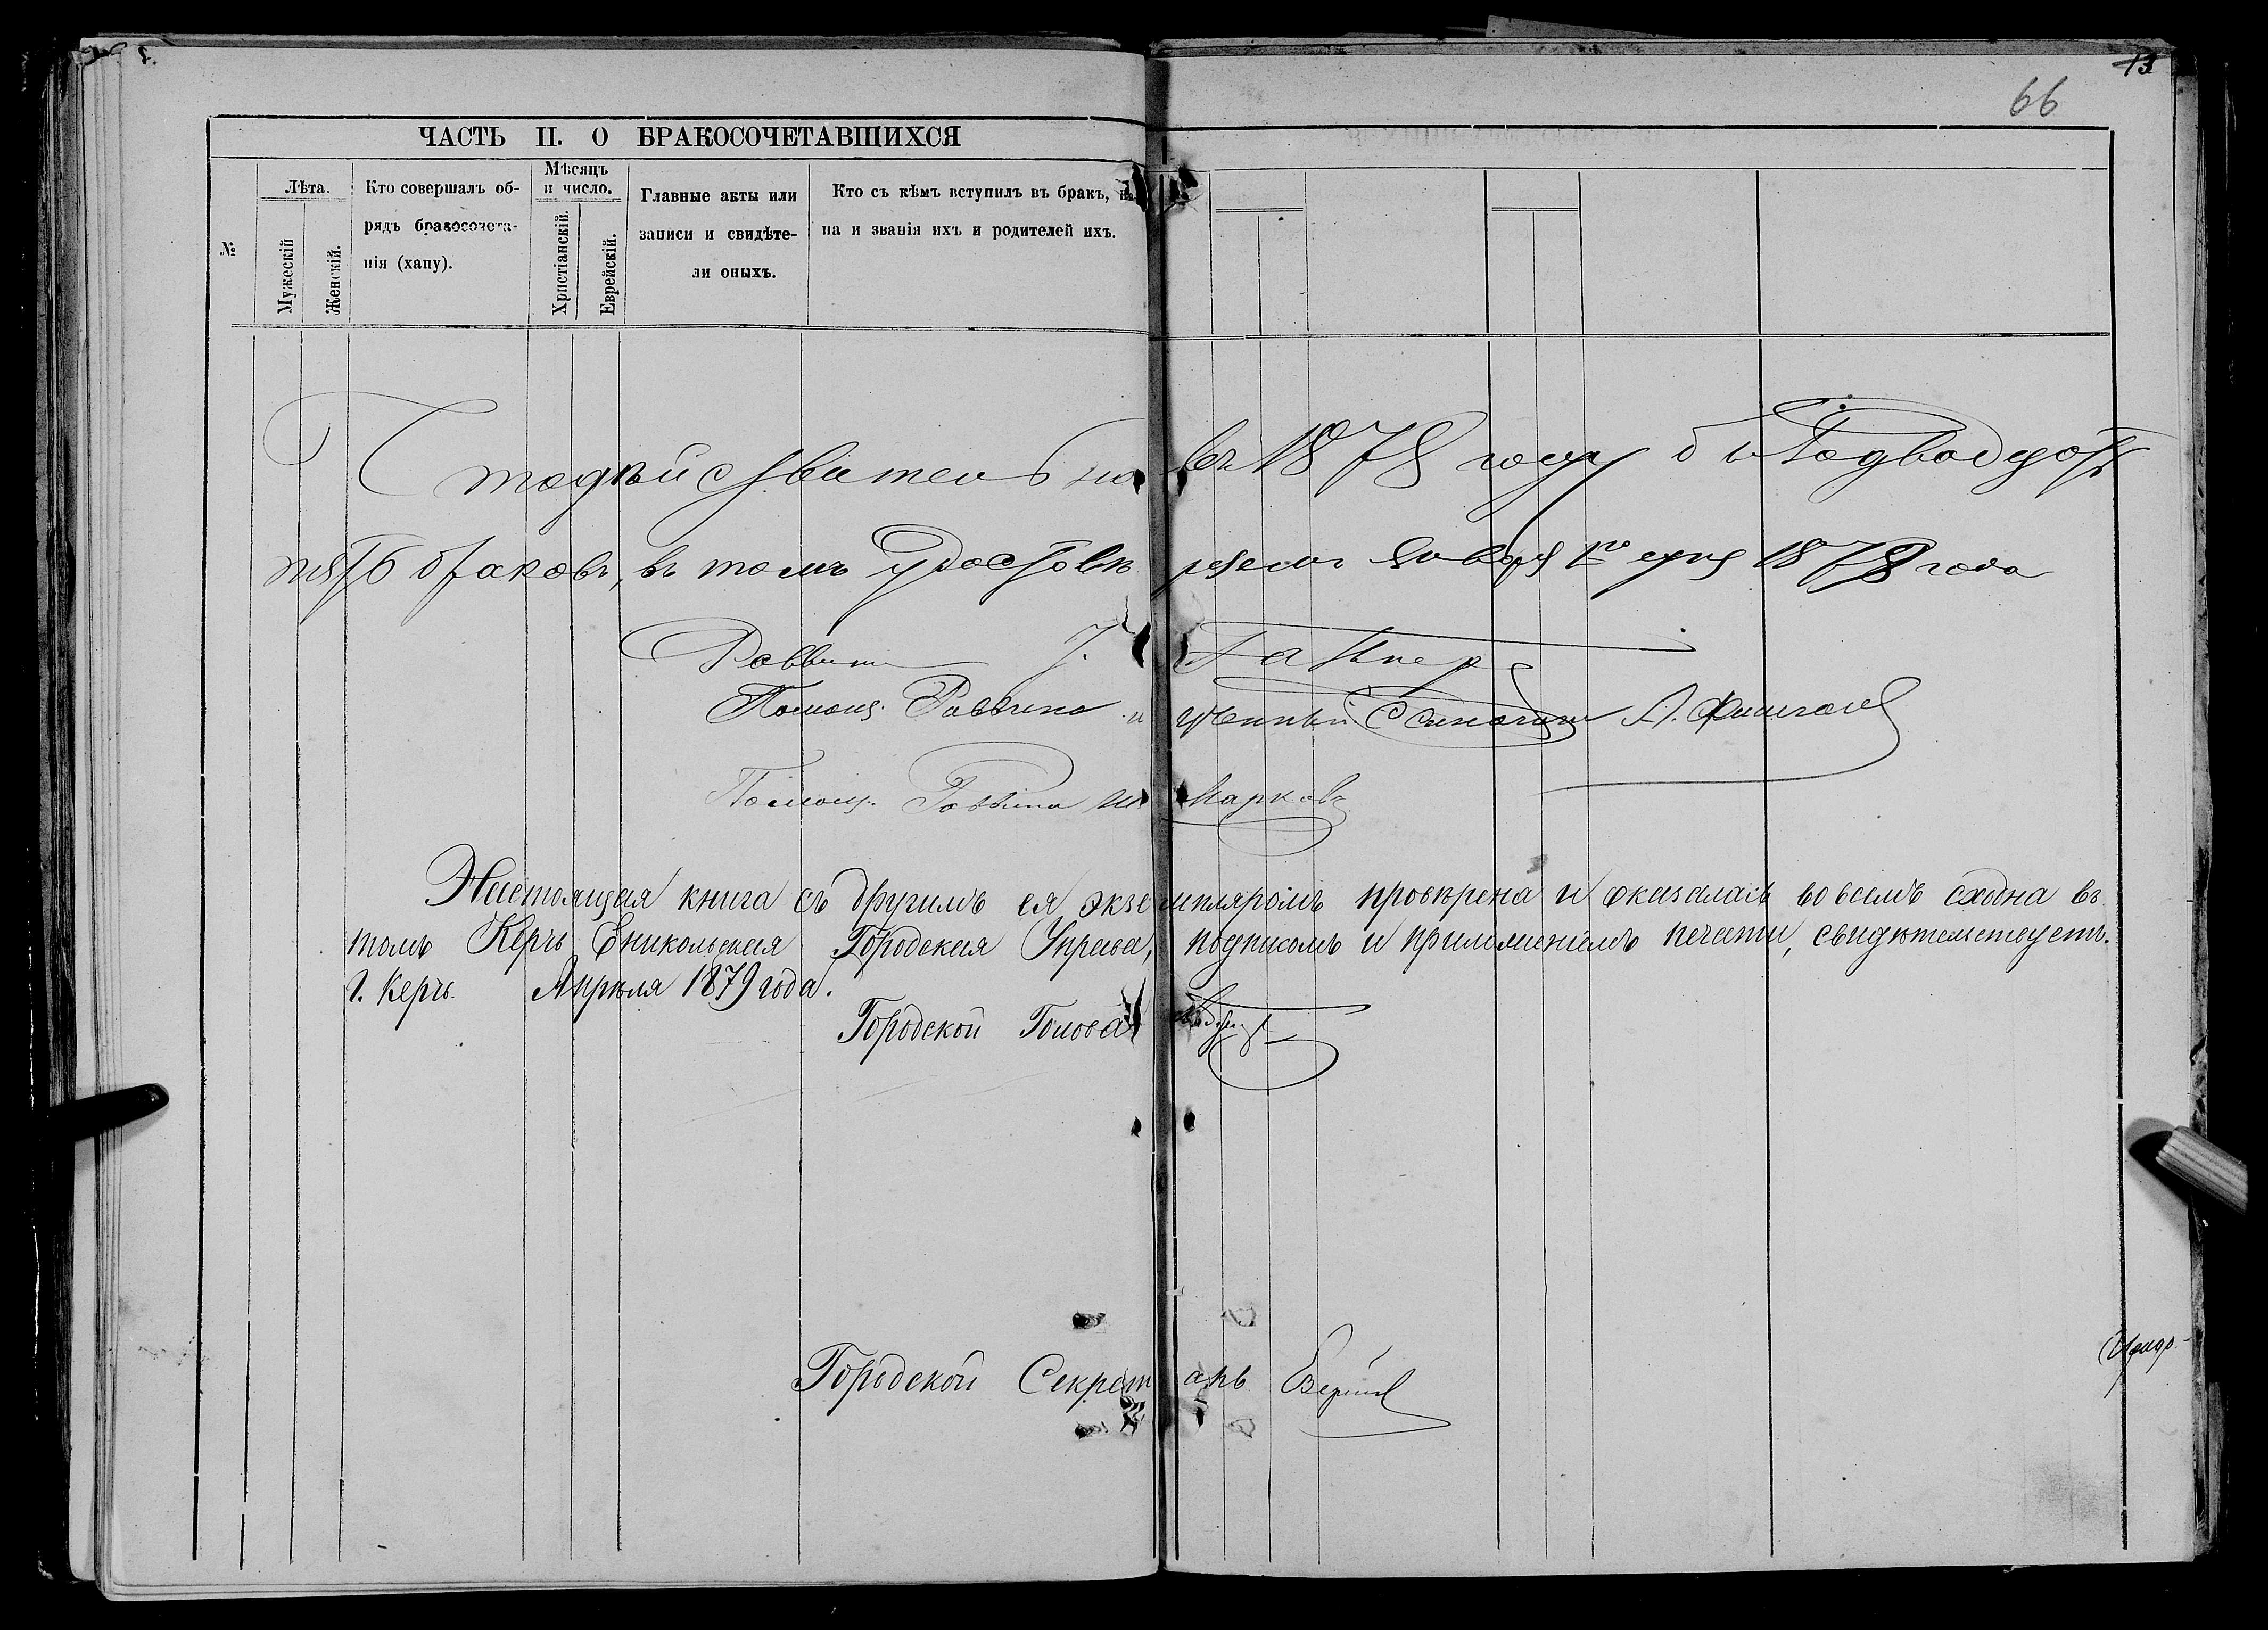 66
ЧАСТЬ II. О БРАКОСОЧЕТАВШИХСЯ
№
Лѣта.
Мужескій
Женскій.
Кто совершалъ об-
рядъ бракосочета-
нія (хапу).
Мѣсяцъ
и число.
Христіанскій.
Еврейскій.
Главные акты или
записи и свидѣте-
ли оныхъ.
Кто съ кѣмъ вступилъ въ бракъ,
на и званія ихъ и родителей ихъ.
Что дѣйствительно въ 1878 году
пять браковъ, въ томъ Января 1го дня 1878 года
Раввинъ
Помощ. Раввина А.
Помощ. Раввина Марковъ
Настоящая книга съ другимъ ея экземпляромъ провѣрена и оказалась во всемъ сходна въ
томъ Керчь Еникольская Городская Управа, подписомъ и приложеніемъ печати, свидѣтельствуетъ.
Г. Керчь. Апрѣля 1879 года.
Городской Голова
Городской Секретарь